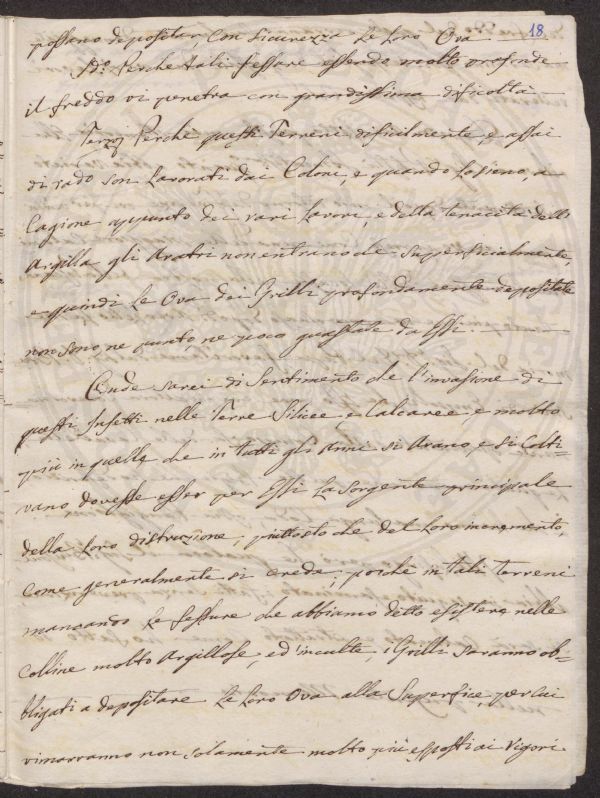 18
possano depositar con sicurezza le loro Ova
2do. Perche tali fessure essendo molto profonde
il freddo vi penetra con grandissima dificoltà
Terzo Perchè questi Terreni dificilmente, e assai
di rado son lavorati dai Coloni, e quando lo sieno, a
Cagione appunto dei rari lavori, e della tenacità dell'
Argilla gli Aratri non entrano che superficialmente,
e quindi le Ova dei Grilli profondamente depositate
non sono ne punto, ne poco guastate da Essi
Onde sarei di Sentimento che l'invasione di
questi Insetti nelle Terre Silicee, e Calcaree, e molto
più in quelle che in tutti gli Anni si Arano, e si Colti=
vano, dovesse esser per Essi la sorgente principale
della loro distruzione, piuttosto che del loro incremento,
come generalmente si creda, poichè in tali terreni
mancando le fessure che abbiamo detto esistere nelle
Colline molto Argillose, ed inculte, i Grilli saranno ob=
bligati a depositare le loro Ova alla Superfice, per cui
rimarranno non solamente molto più esposti ai rigori